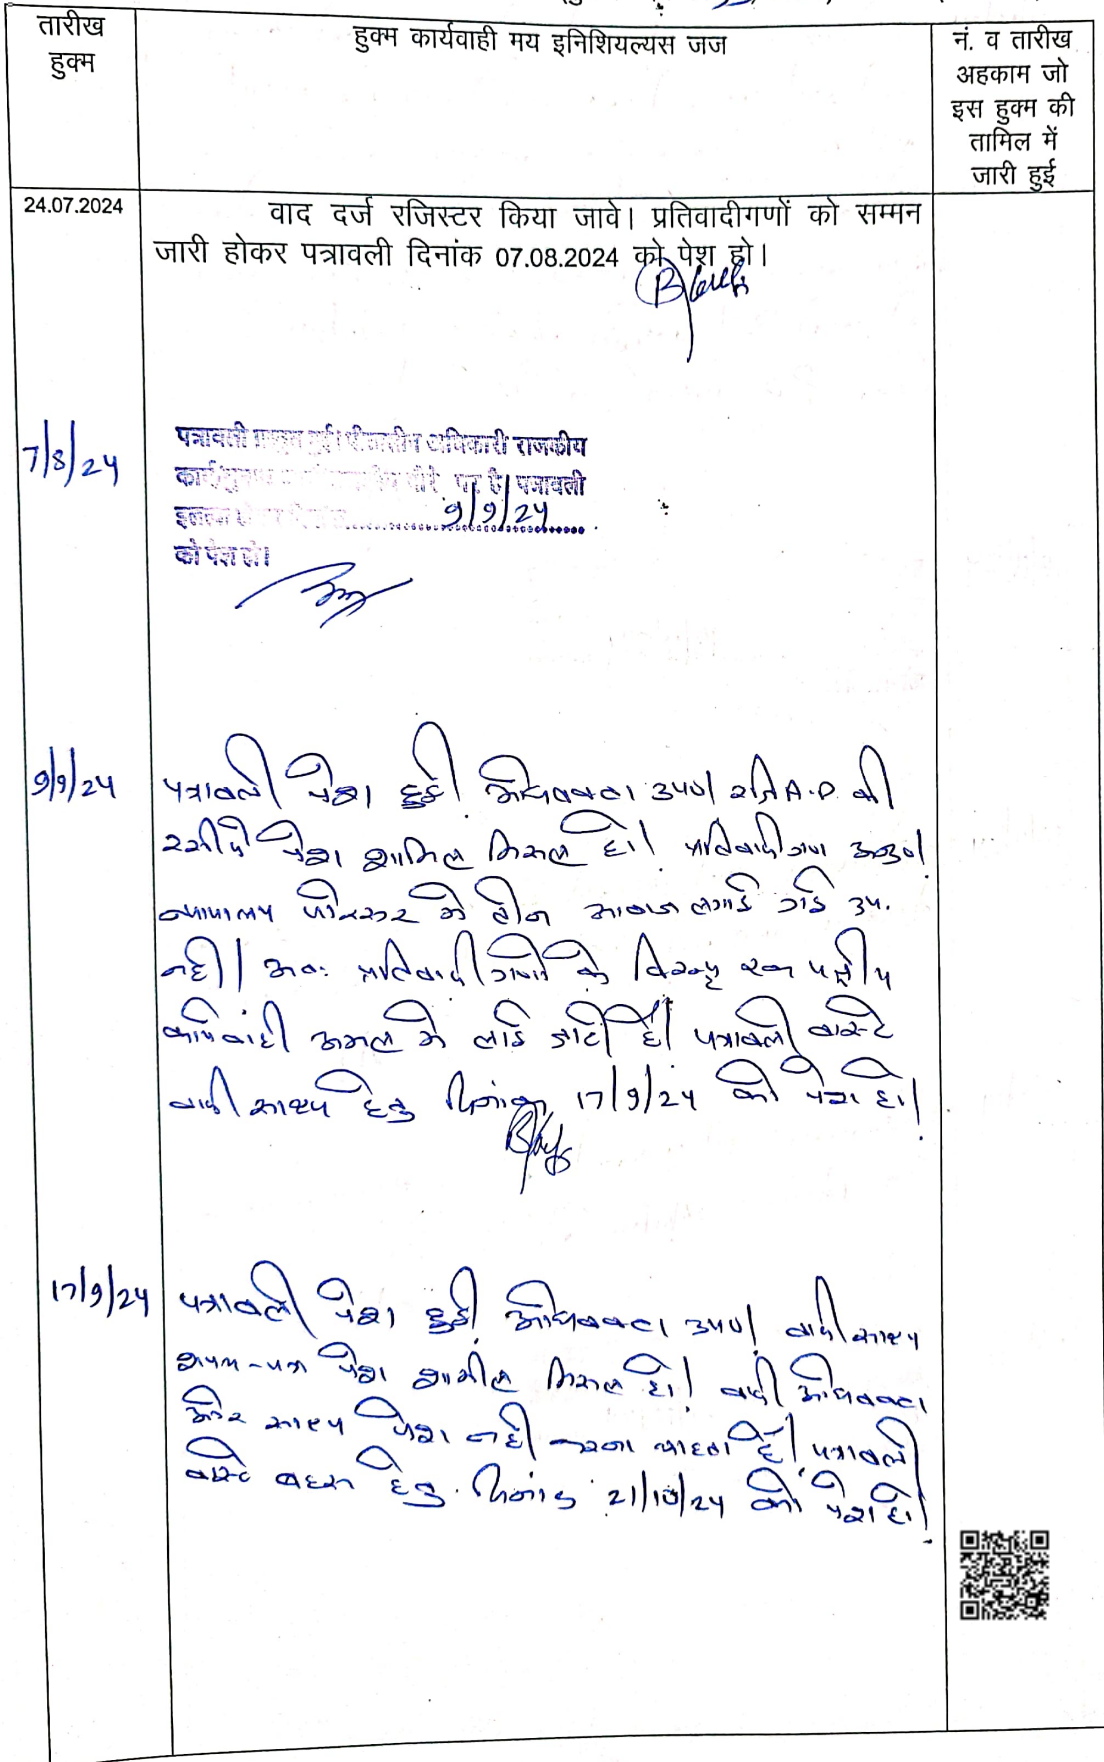 तारीख
हुक्म
हुक्म कार्यवाही मय इनिशियल्यस जज
नं. व तारीख
अहकाम जो
इस हुक्म की
तामिल में
जारी हुई
24.07.2024
वाद दर्ज रजिस्टर किया जावे। प्रतिवादीगणों को सम्मन
जारी होकर पत्रावली दिनांक 07.08.2024 को पेश हो।
7/8/24
पत्रावली अधिकारी राजकीय
पर है। पत्रावली
9/9/24
को पेश हो।
9/9/24
पत्रावली पेश हुई। अधिवक्ता उप0। रजि A.D. की
रसीदे पेश शामिल मिसल हो। प्रतिवादीगण अनु0।
न्यायालय परिसर मे तीन आवाज लगाई गई उप.
नही। अतः प्रतिवादीगणो के विरुद्ध एक पक्षीय
कार्यवाही अमल मे लाई जाती है। पत्रावली वास्ते
वादी साक्ष्य हेतु दिनांक 17/9/24 को पेश हो।
17/9/24
पत्रावली पेश हुई। अधिवक्ता उप0। वादी साक्ष्य
शपथ-पत्र पेश शामील मिसल हो। वादी अधिवक्ता
और साक्ष्य पेश नही करना चाहता है। पत्रावली
वास्ते बहस हेतु दिनांक 21/10/24 को पेश हो।